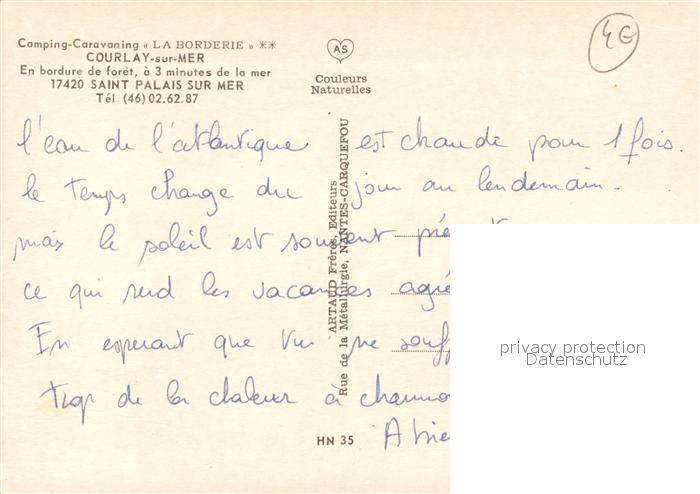 Camping-Caravaning « LA BORDERIE » **
COURLAY-sur-MER
En bordure de forêt, à 3 minutes de la mer
17420 SAINT PALAIS SUR MER
Tél. (46) 02.62.87
AS
Couleurs
Naturelles
4G
l'eau de l'atlantique est chaude pour 1 fois.
le temps change du jour au lendemain.
mais le soleil est souvent
ce qui rend les vacances
En esperant que tu ne
trop de la chaleur à
A
ARTAUD Frères, Editeurs
Rue de la Métallurgie, NANTES-CARQUEFOU
HN 35
privacy protection
Datenschutz